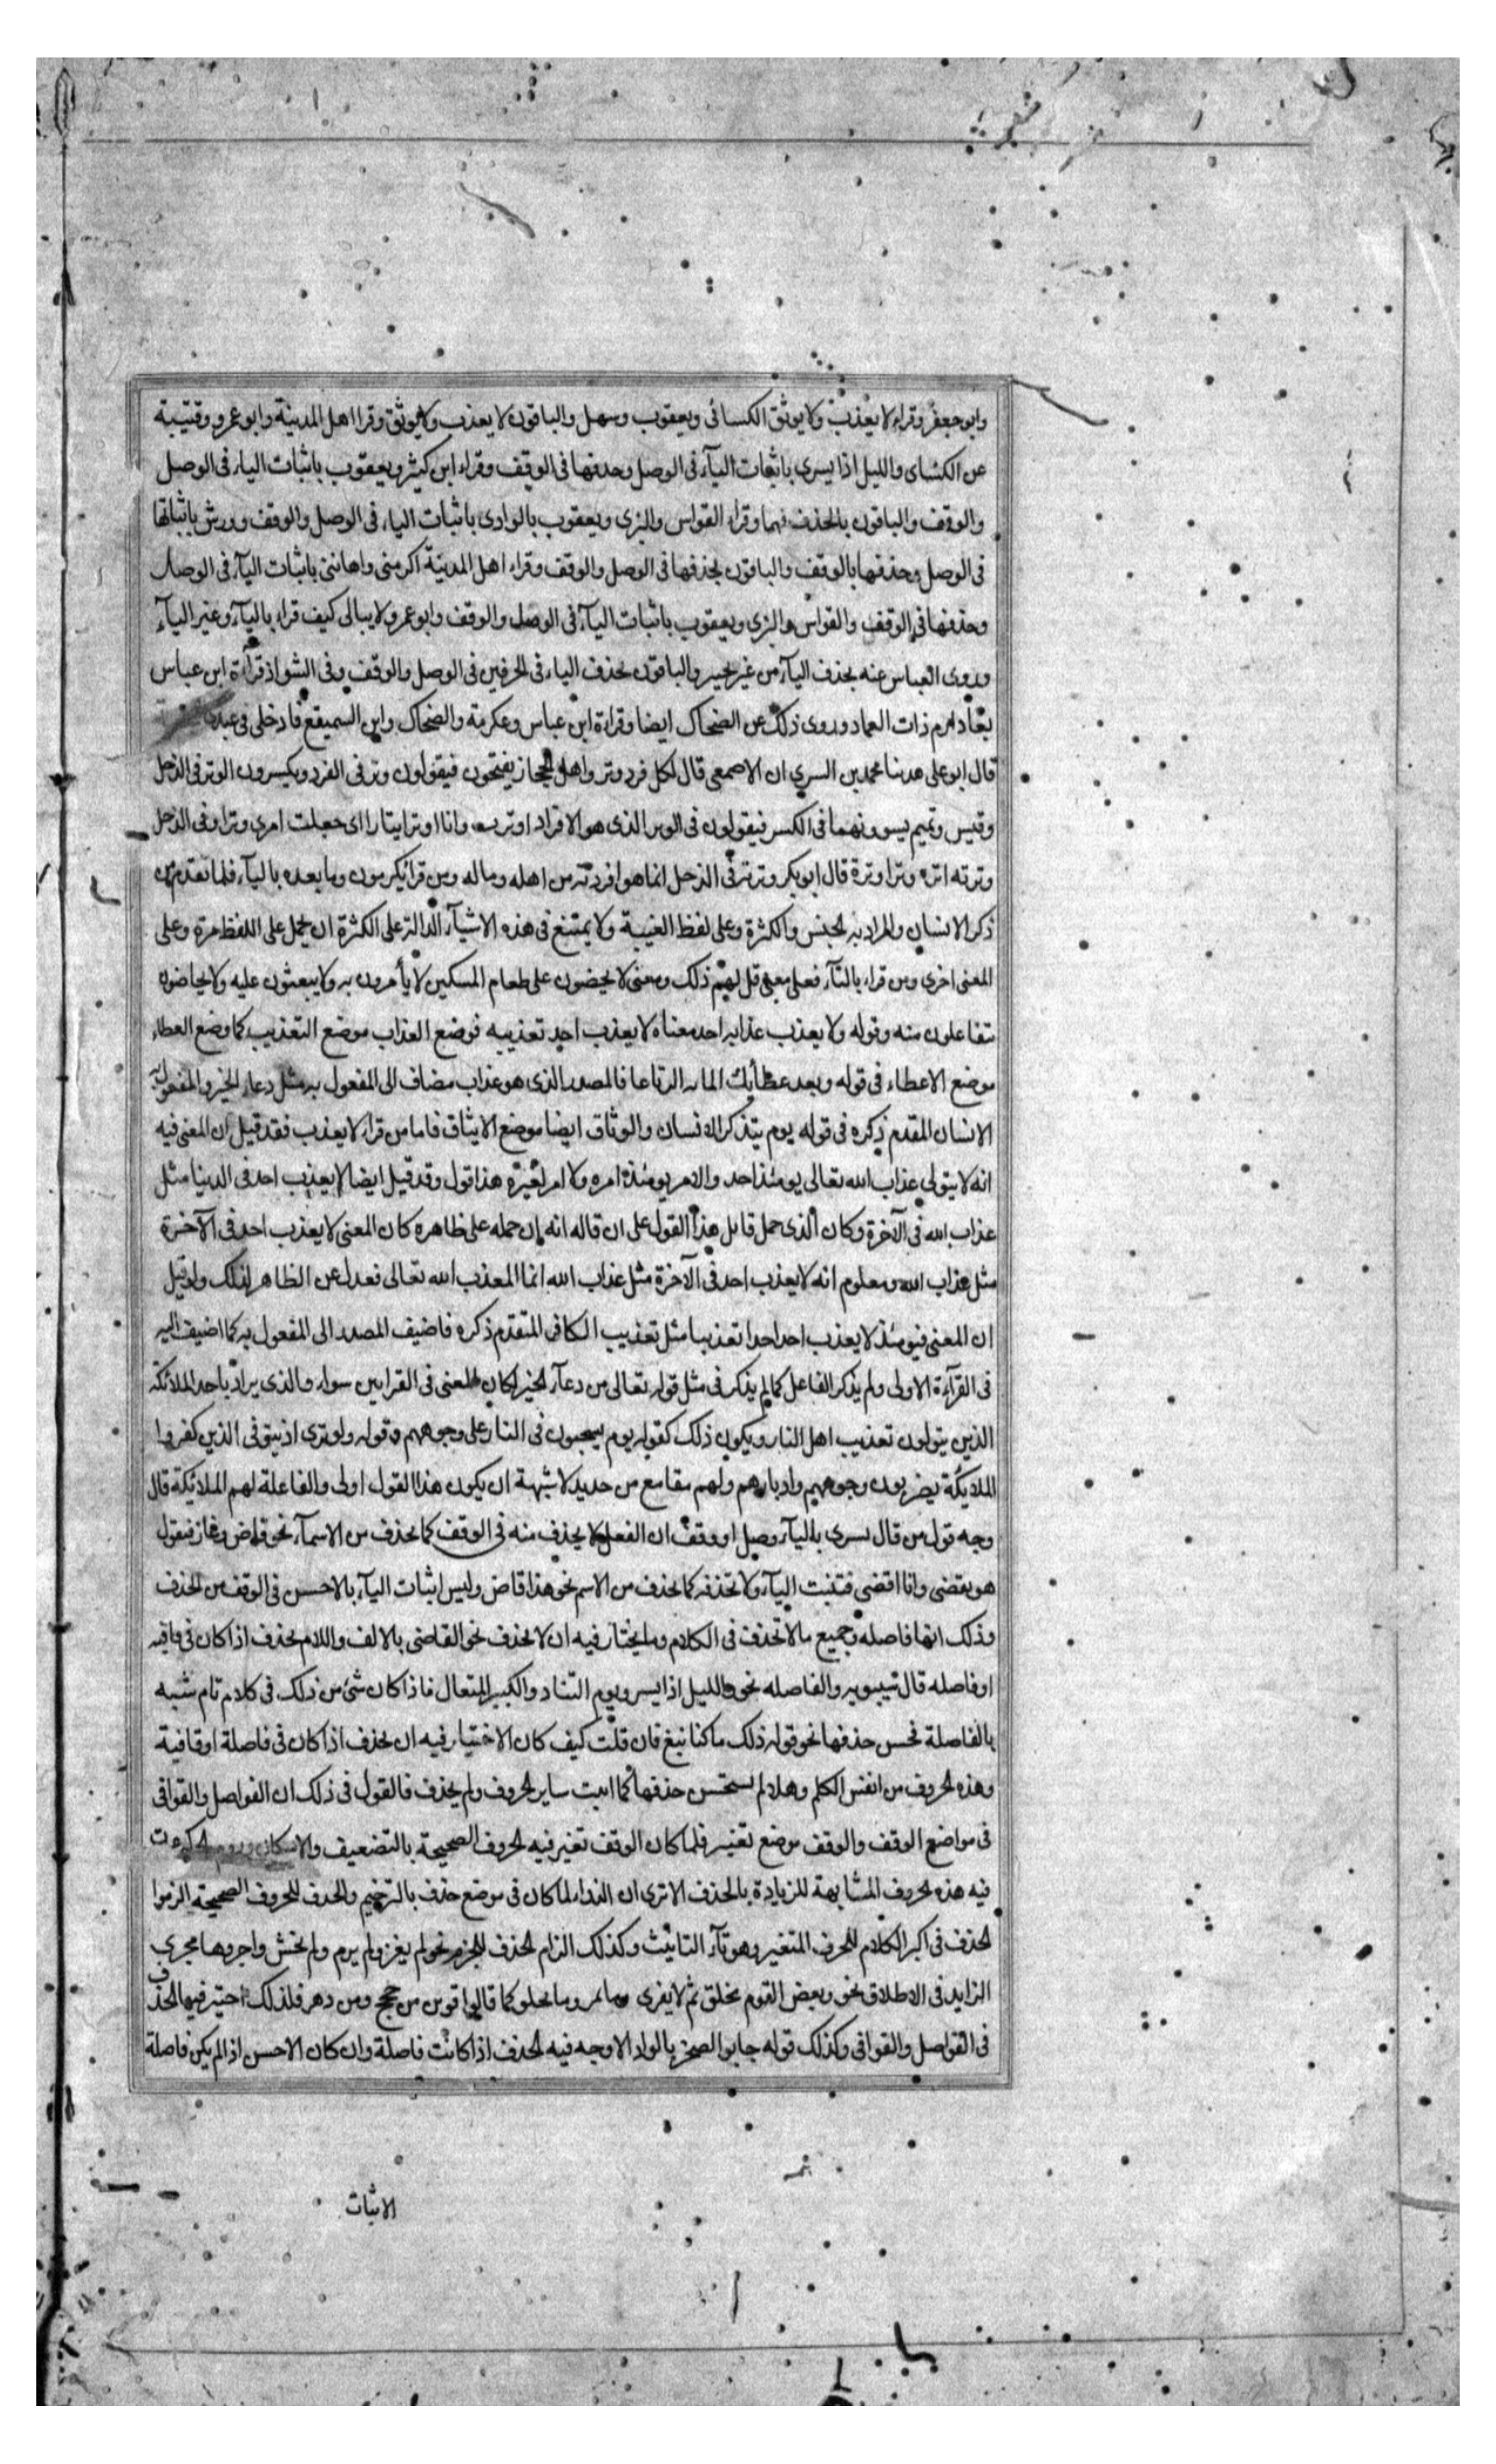 وابو جعفر وقراء لا يعذب ولا يوثق الكسائى ويعقوب وسهل والباقون لا يعذب ولا يوثق وقرا اهل المدينة وابو عمرو وقتيبة
عن الكسائى والليل اذا يسرى باثبات اليآء فى الوصل وحذفها فى الوقف وقراء ابن كثير ويعقوب باثبات الياء فى الوصل
والوقف والباقون بالحذف فيهما وقراء القواس والبزى ويعقوب بالوادى باثبات الياء فى الوصل والوقف وورش باثباتها
فى الوصل وحذفها بالوقف والباقون بحذفها فى الوصل والوقف وقراء اهل المدينة اكرمنى واهاننى باثبات اليآء فى الوصل
وحذفها فى الوقف والقواس والبزى ويعقوب باثبات اليآء فى الوصل والوقف وابو عمرو لا يبالى كيف قراء باليآء وغير اليآء
وروى العباس عنه بحذف اليآء من غير تخيير والباقون بحذف الياء فى الحرفين فى الوصل والوقف وفى الشواذ قرآءة ابن عباس
بعاد ارم ذات العماد وروى ذلك عن الضحاك ايضا وقراءة ابن عباس وعكرمة والضحاك وابن السميقع فادخلى فى عبدى
قال ابو على حدثنا محمد بن السرى ان الاصمعى قال لكل فرد وتر واهل الحجاز يفتحون فيقولون وتر فى الفرد ويكسرون الوتر فى الذحل
وقيس وتميم يسوونهما فى الكسر فيقولون فى الوتر الذى هو الافراد اوترت وانا اوتر ايتارا اى جعلت امرى وترا وفى الذحل
وترته اتره وترا وترة قال ابو بكر وترته فى الذحل انما هو افردته من اهله وماله ومن قرا يكرمون وما بعده باليآء فلما تقدم من
ذكر الانسان والمراد به الجنس والكثرة وعلى لفظ الغيبة ولا يمتنع فى هذه الاشيآء الدالة على الكثرة ان يحمل على اللفظ مرة وعلى
المعنى اخرى ومن قراء بالتآء فعلى معنى قل لهم ذلك ومعنى لا يحضون على طعام المسكين لا يأمرون به ولا يبعثون عليه ولا يحاضون
تتفاعلون منه وقوله ولا يعذب عذابه احد معناه لا يعذب احد تعذيبه فوضع العذاب موضع التعذيب كما وضع العطاء
موضع الاعطاء فى قوله وبعد عطائك المائة الرتاعا فالمصدر الذى هو عذاب مضاف الى المفعول به مثل دعاء الخير والمفعول به
الانسان المقدم ذكره فى قوله يوم يتذكر الانسان والوثاق ايضا موضع الايثاق فاما من قراء لا يعذب فقد قيل ان المعنى فيه
انه لا يتولى عذاب الله تعالى يومئذ احد والامر يومئذ امره ولا امر لغيره هذا قول وقد قيل ايضا لا يعذب احد فى الدنيا مثل
عذاب الله فى الآخرة وكان الذى حمل قايل هذا القول على ان قاله انه ان حمله على ظاهره كان المعنى لا يعذب احد فى الآخرة
مثل عذاب الله ومعلوم انه لا يعذب احد فى الآخرة مثل عذاب الله انما المعذب الله تعالى فعدل عن الظاهر لذلك ولو قيل
ان المعنى فيومئذ لا يعذب احد احدا تعذيبا مثل تعذيب الكافر المتقدم ذكره فاضيف المصدر الى المفعول به كما اضيف اليه
فى القرآءة الاولى ولم يذكر الفاعل كما لم يذكر فى مثل قوله تعالى من دعآء الخير لكان المعنى فى القرايين سواء والذى يراد باحد الملائكة
الذين يتولون تعذيب اهل النار ويكون ذلك كقوله يوم يسحبون فى النار على وجوههم وقوله ولو ترى اذ يتوفى الذين كفروا
الملايكة يضربون وجوههم وادبارهم ولهم مقامع من حديد لا شبهة ان يكون هذا القول اولى والفاعلة لهم الملائكة قال
وجه قول من قال يسرى باليآء وصل او وقف ان الفعل لا يحذف منه فى الوقف كما يحذف من الاسمآء نحو قاض وغاز فتقول
هو يقضى وانا اقضى فتثبت اليآء ولا تحذفه كما يحذف من الاسم نحو هذا قاض وليس اثبات اليآء بالاحسن فى الوقف من الحذف
وذلك انها فاصله وجميع ما لا تحذف فى الكلام وما يختار فيه ان لا يحذف نحو القاضى بالالف واللام يحذف اذا كان فى قافيه
او فاصله قال سيبويه والفاصله نحو والليل اذا يسر ويوم التناد والكبير المتعال فاذا كان شئ من ذلك فى كلام تام شبه
بالفاصلة فحسن حذفها نحو قوله ذلك ما كنا نبغ فان قلت كيف كان الاختيار فيه ان يحذف اذا كان فى فاصلة او قافية
وهذه الحروف من انفس الكلم وهلا لم يستحسن حذفها كما اثبت ساير الحروف ولم يحذف فالقول فى ذلك ان الفواصل والقوافى
فى مواضع الوقف والوقف موضع تغيير فلما كان الوقف تغير فيه الحروف الصحيحة بالتضعيف والاسكان وروم الحركة
فيه هذه الحروف المشابهة للزيادة بالحذف الا ترى ان الندا لما كان فى موضع حذف بالترخيم والحذف للحروف الصحيحة الزموا
الحذف فى اكثر الكلام للحرف المتغير وهو تآء التانيث وكذلك الزام الحذف للجزم نحو لم يغز ولم يرم ولم يخش واجروها مجرى
الزايد فى الاطلاق نحو وبعض القوم يخلق ثم لا يفرى وما يمر وما يحلو كما قالوا اقوين من حجج ومن دهر فلذلك اختير فيها الحذف
فى الفواصل والقوافى وكذلك قوله جابوا الصخر بالواد الاوجه فيه الحذف اذا كانت فاصلة وان كان الاحسن اذا لم يكن فاصلة
الاثبات